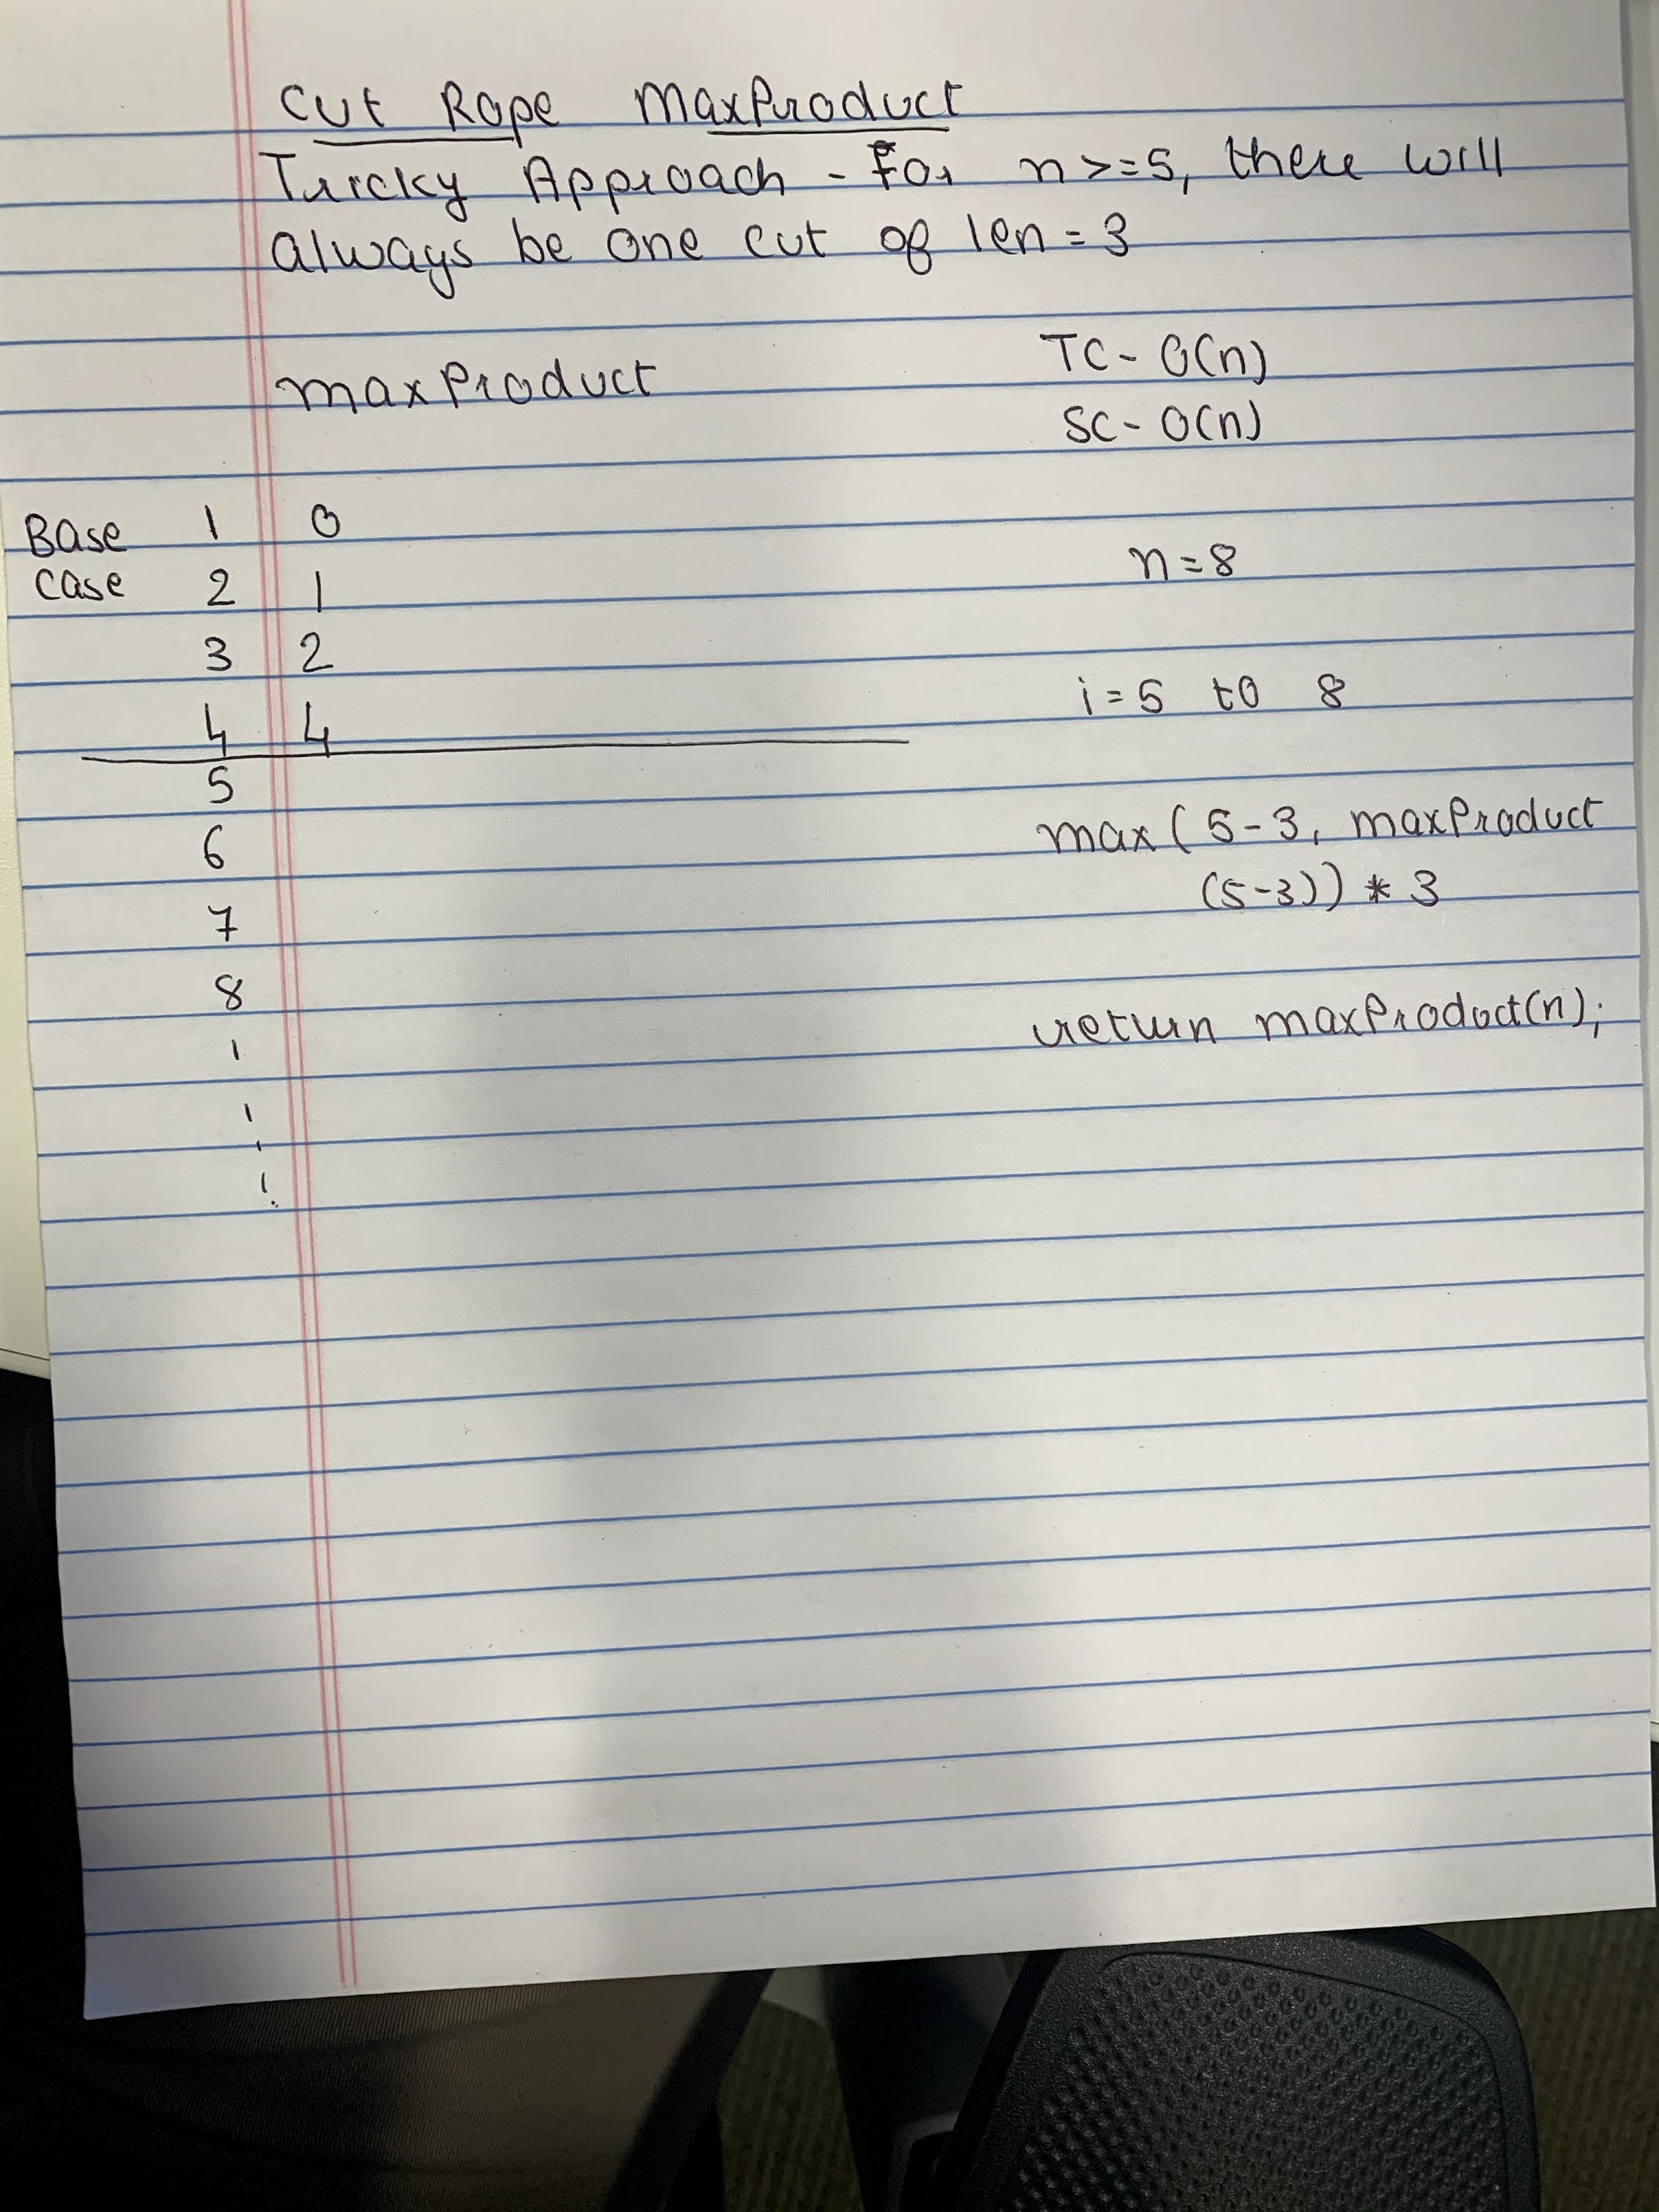 Cut Rope MaxProduct
Tricky Approach - For n >= 5, there will
always be one cut of len = 3
TC - O(n)
maxProduct
SC - O(n)
Base 1 0
case 2 1
n = 8
3 2
i = 5 to 8
4 4
5
max ( 5-3, maxProduct
6
(5-3)) * 3
7
8
return maxProduct(n);